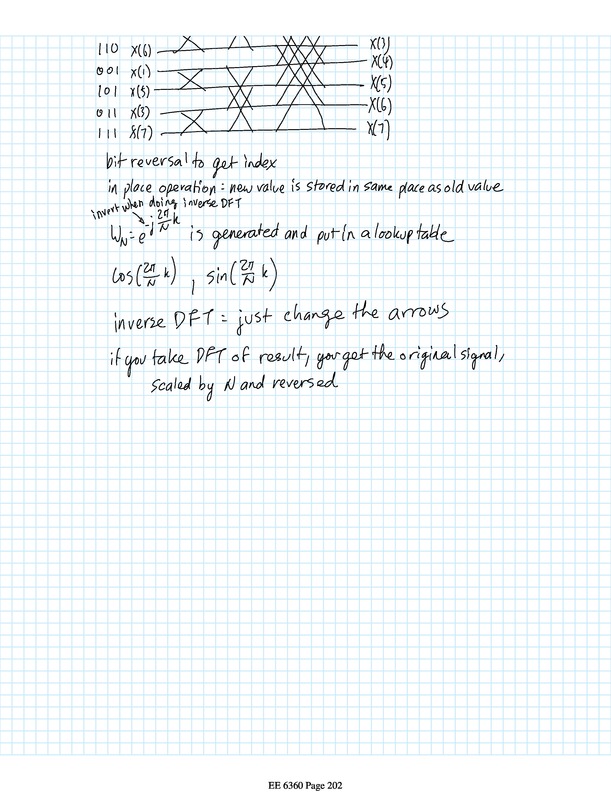 110 x(6) X(3)
X(4)
001 x(1)
101 x(5) X(5)
011 x(3) X(6)
111 x(7) X(7)
bit reversal to get index
in place operation: new value is stored in same place as old value
invert when doing inverse DFT
W_N = e^{-j 2π/N k} is generated and put in a lookup table
cos(2π/N k) , sin(2π/N k)
inverse DFT = just change the arrows
if you take DFT of result, you get the original signal,
scaled by N and reversed
EE 6360 Page 202